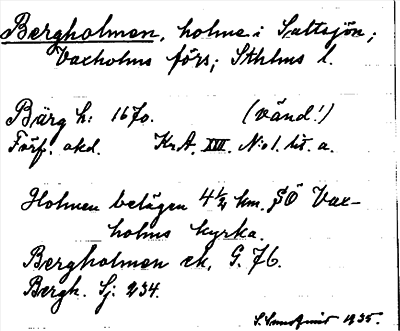 Bergholmen, holme i Saltsjön;
Vaxholms förs; Sthlms l.
Bärg h: 1670. (vänd!)
Förf. okd. Kr.A. XVII. No 1. lit. a.
Holmen belägen 4 ½ km. SÖ Vax-
holms kyrka.
Bergholmen ek, G. 76.
Bergh. Sj: 234.
1935.